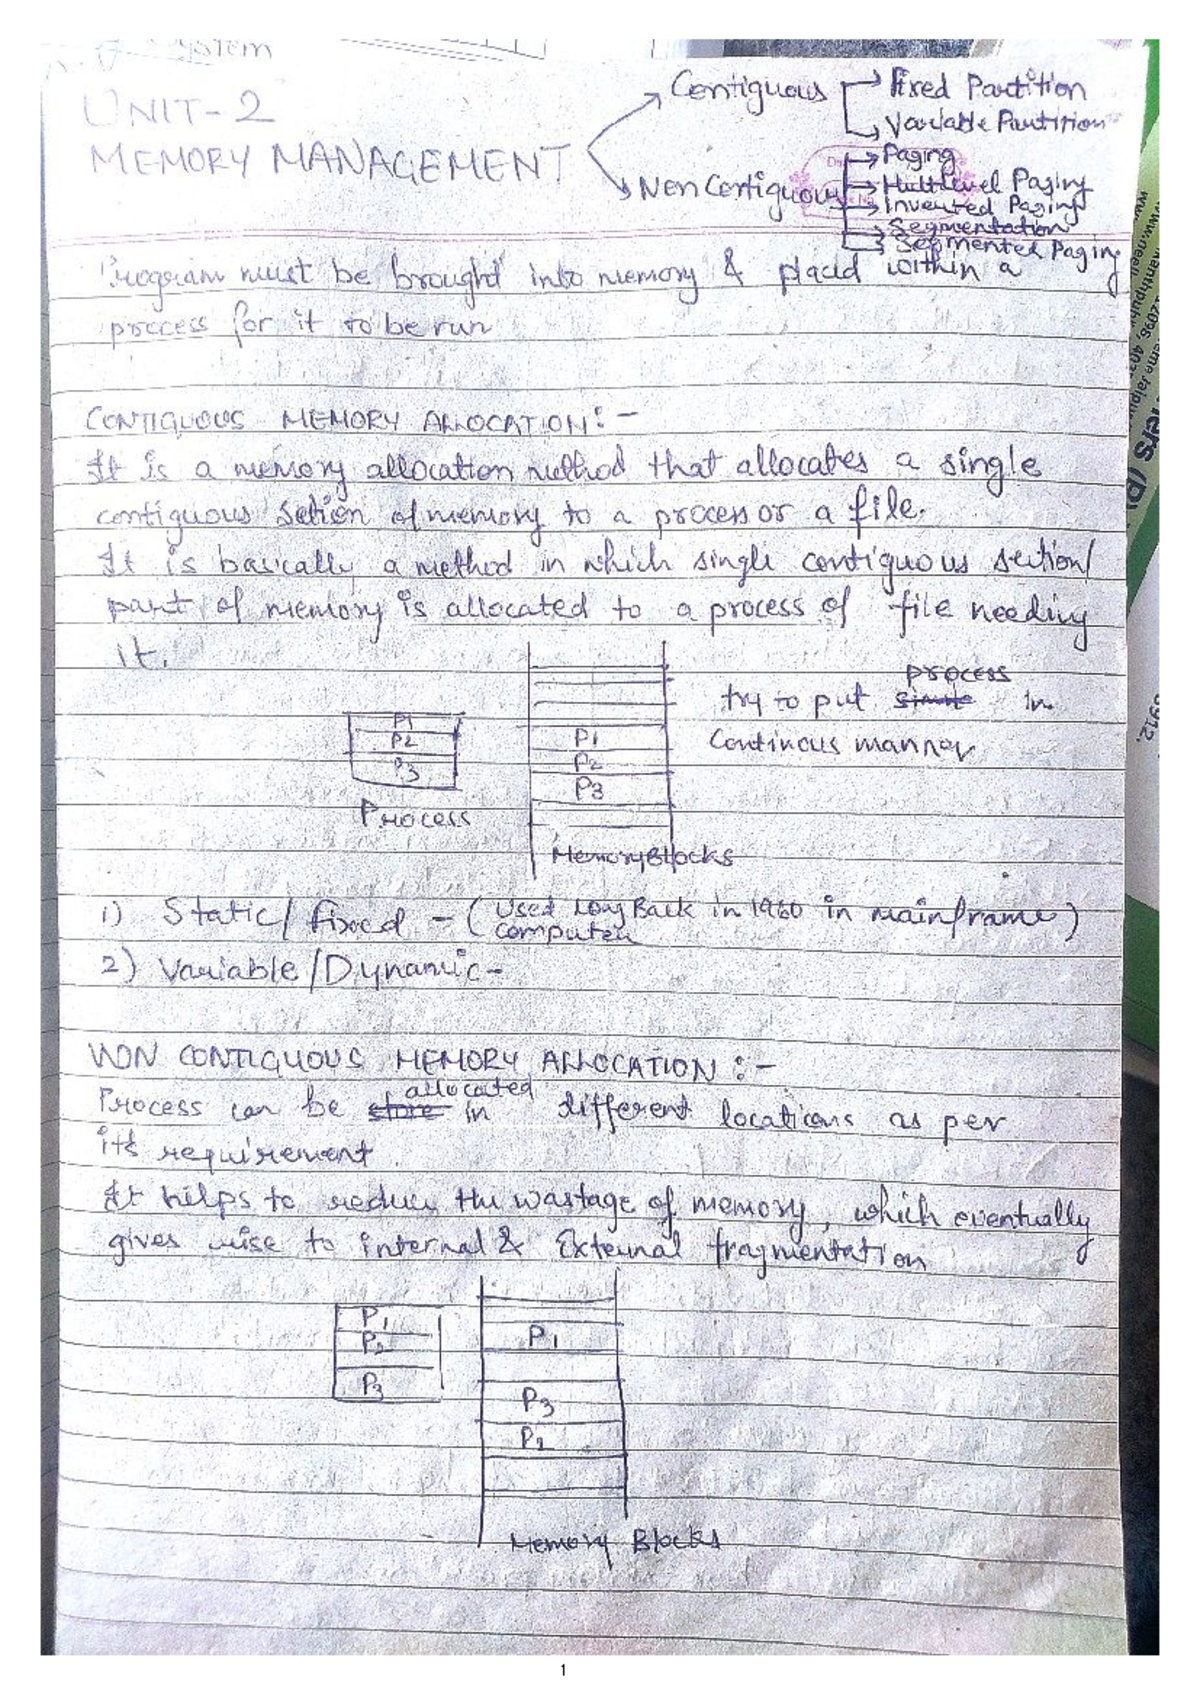 System
UNIT-2
MEMORY MANAGEMENT
Contiguous
Fixed Partition
Variable Partition
Non Contiguous
Paging
Multilevel Paging
Inverted Paging
Segmentation
Segmented Paging
Program must be brought into memory & placed within a
process for it to be run
CONTIGUOUS MEMORY ALLOCATION:-
It is a memory allocation method that allocates a single
contiguous Setion of memory to a process or a file.
It is basically a method in which single contiguous section/
part of memory is allocated to a process of file needing
it.
P1
P2
P3
Process
P1
P2
P3
Memory Blocks
try to put process in
Continous manner
1) Static/fixed - (Used Long Back in 1960 in mainframe)
computer
2) Variable/Dynamic-
NON CONTIGUOUS MEMORY ALLOCATION:-
Process can be allocated in different locations as per
its requirement
It helps to reduce the wastage of memory, which eventually
gives rise to internal & External fragmentation
P1
P2
P3
P1
P3
P2
Memory Blocks
1